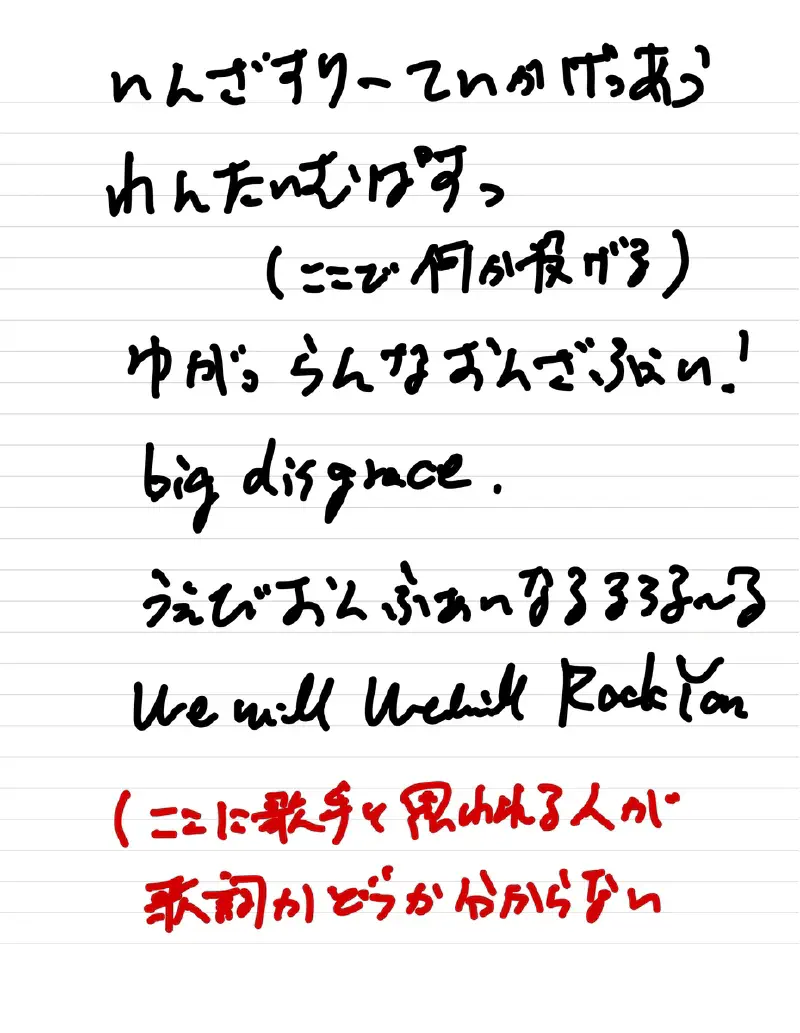 いんざすりーていかげっあう
れんたいむぱすっ
(ここで何か投げる)
ゆがっらんなおんざふぁい!
big disgrace.
うえびおんふぁいなるるろる〜る
We will We will Rock You
(ここに歌手と思われる人が
歌詞かどうか分からない